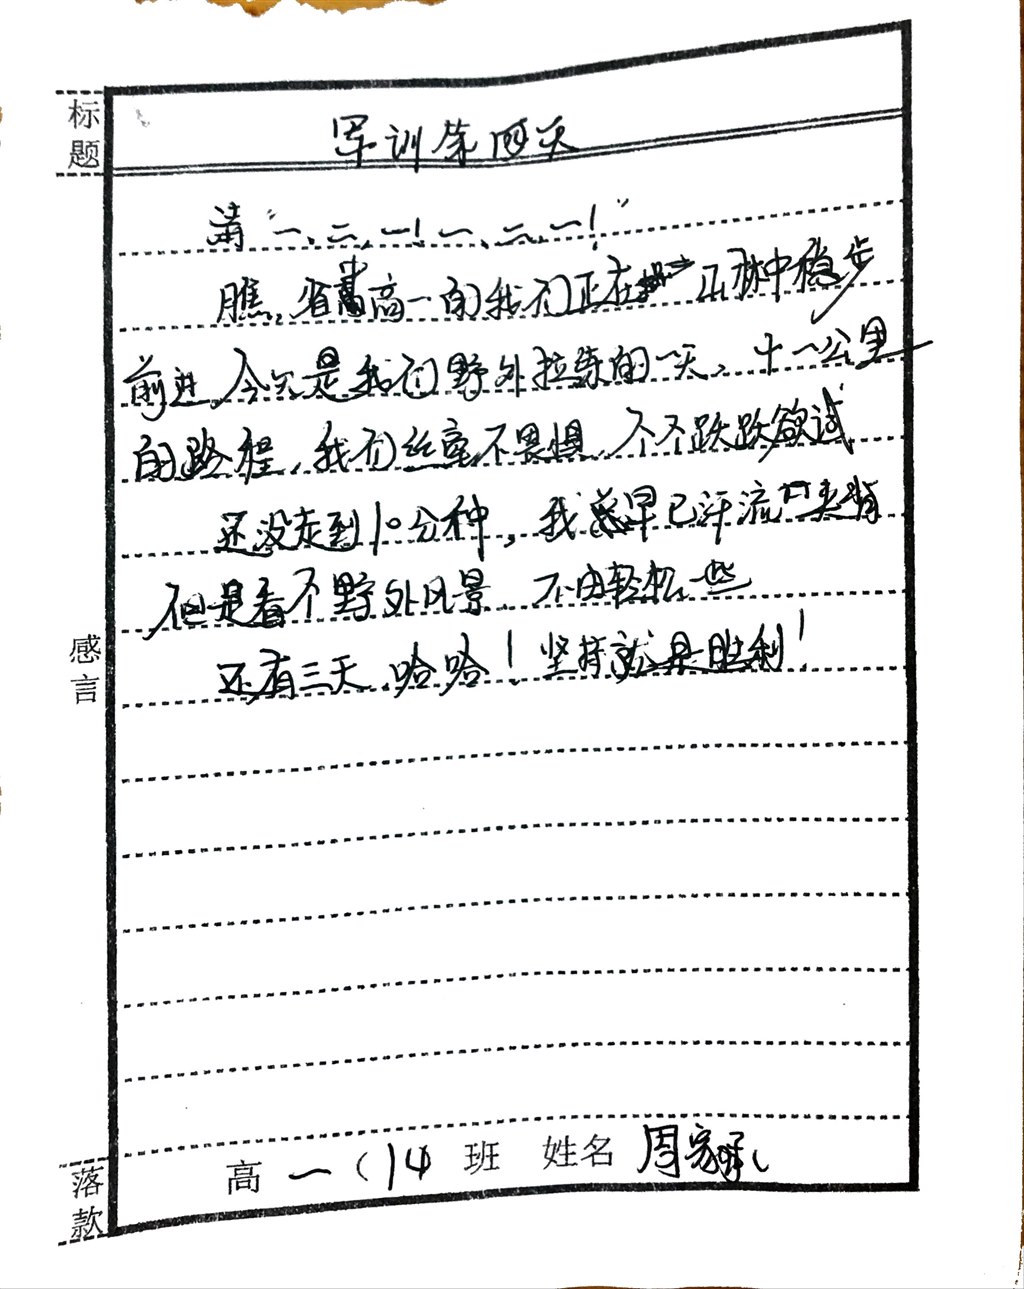 标题
军训第四天
请"一、二、一!一、二、一!"
瞧,省中高一的我们正在山林中稳步
前进,今天是我们野外拉练的一天、十一公里
的路程,我们丝毫不畏惧,个个跌跌欲试
还没走到10分种,我早已汗流夹背
但是看不野外风景,不由轻松一些
还有三天,哈哈!坚持就是胜利!
感言
高一(14班 姓名 周家
落款